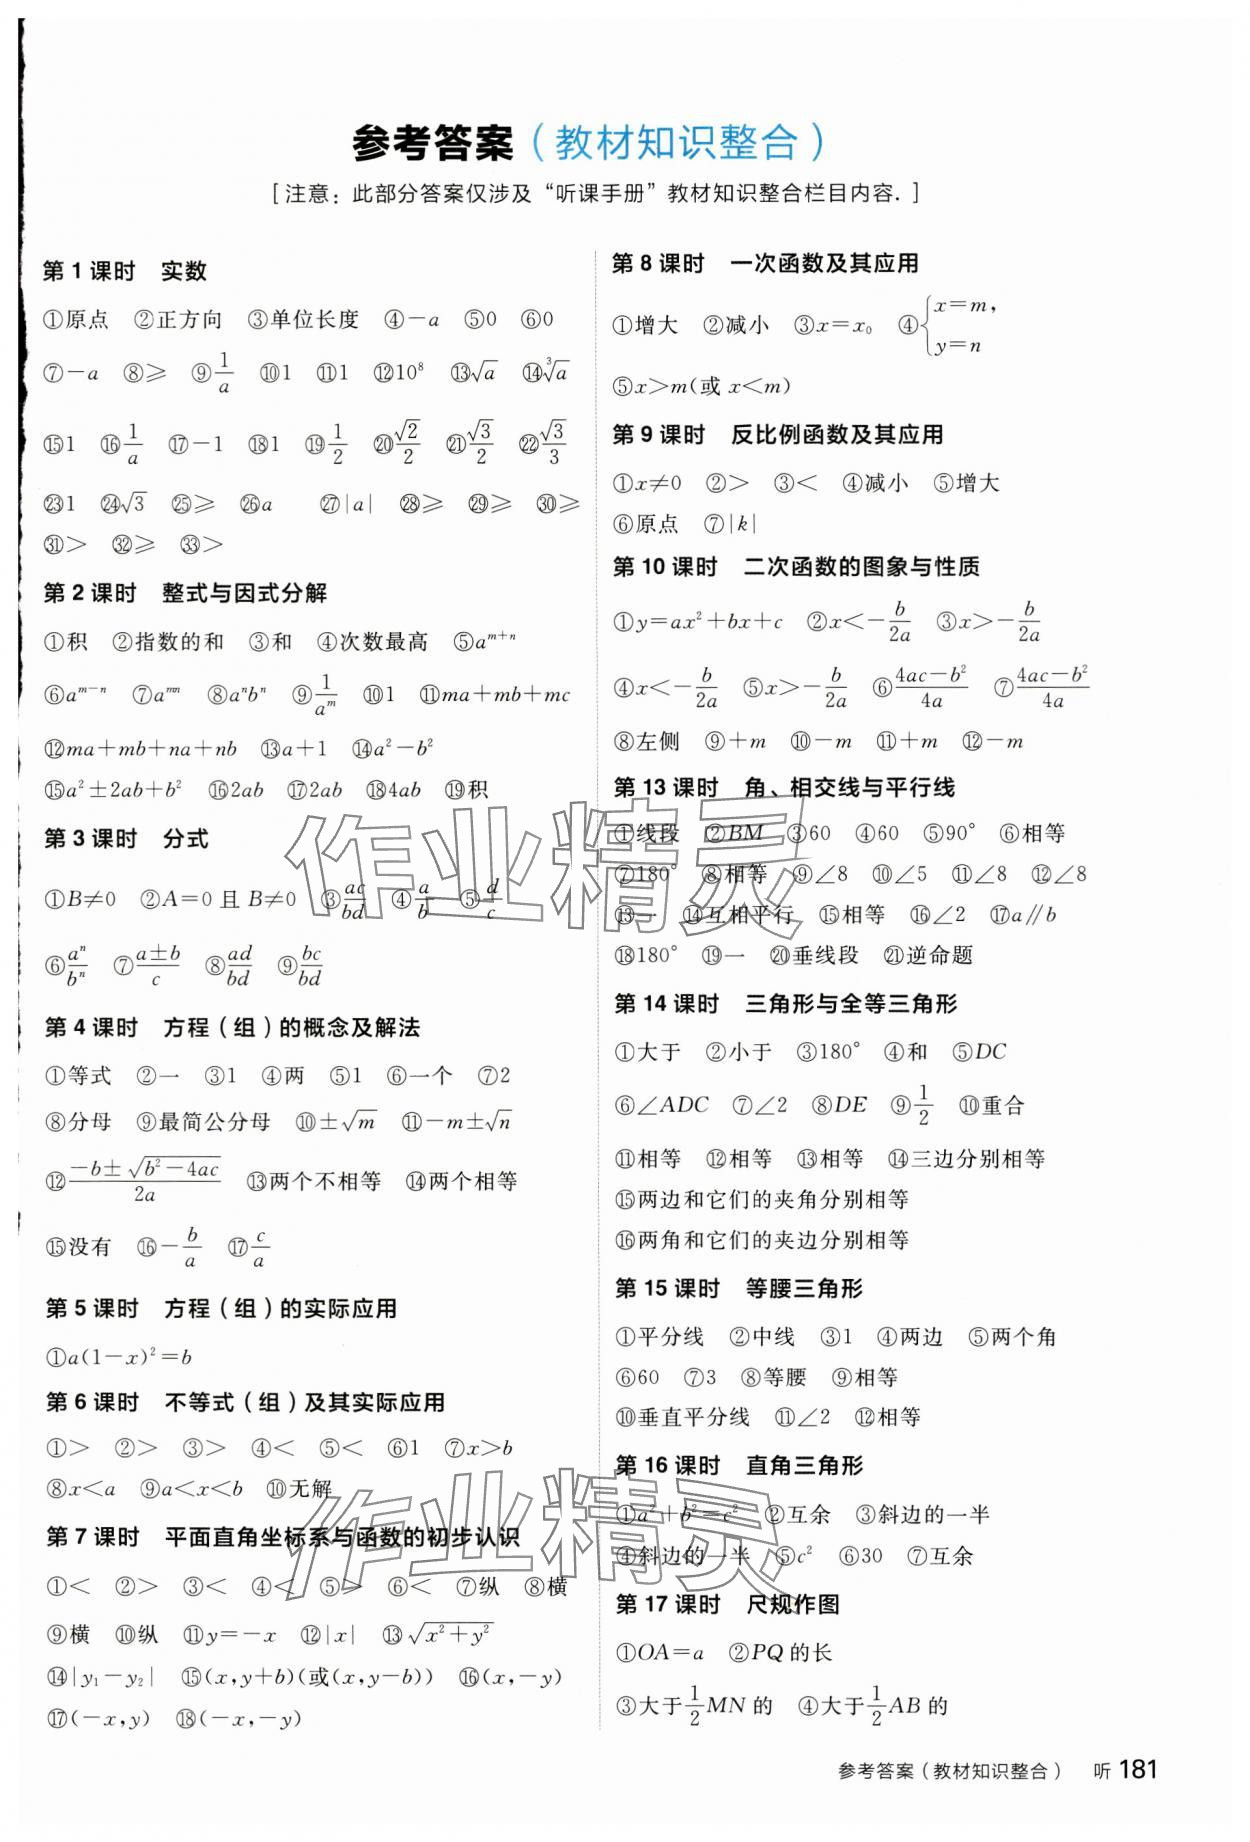 参考答案（教材知识整合）
[注意：此部分答案仅涉及“听课手册”教材知识整合栏目内容.]
第1课时 实数
①原点 ②正方向 ③单位长度 ④-a ⑤0 ⑥0
⑦-a ⑧≥ ⑨1/a ⑩1 ⑪1 ⑫10⁸ ⑬√a ⑭∛a
⑮1 ⑯1/a ⑰-1 ⑱1 ⑲1/2 ⑳√2/2 ㉑√3/2 ㉒√3/3
㉓1 ㉔√3 ㉕≥ ㉖a ㉗|a| ㉘≥ ㉙≥ ㉚≥
㉛> ㉜≥ ㉝>
第2课时 整式与因式分解
①积 ②指数的和 ③和 ④次数最高 ⑤a^(m+n)
⑥a^(m-n) ⑦a^(mn) ⑧aⁿbⁿ ⑨1/a^m ⑩1 ⑪ma+mb+mc
⑫ma+mb+na+nb ⑬a+1 ⑭a²-b²
⑮a²±2ab+b² ⑯2ab ⑰2ab ⑱4ab ⑲积
第3课时 分式
①B≠0 ②A=0且B≠0 ③ac/bd ④a/b ⑤d/c
⑥aⁿ/bⁿ ⑦(a±b)/c ⑧ad/bd ⑨bc/bd
第4课时 方程（组）的概念及解法
①等式 ②一 ③1 ④两 ⑤1 ⑥一个 ⑦2
⑧分母 ⑨最简公分母 ⑩±√m ⑪-m±√n
⑫(-b±√(b²-4ac))/2a ⑬两个不相等 ⑭两个相等
⑮没有 ⑯-b/a ⑰c/a
第5课时 方程（组）的实际应用
①a(1-x)²=b
第6课时 不等式（组）及其实际应用
①> ②> ③> ④< ⑤< ⑥1 ⑦x>b
⑧x<a ⑨a<x<b ⑩无解
第7课时 平面直角坐标系与函数的初步认识
①< ②> ③< ④< ⑤> ⑥< ⑦纵 ⑧横
⑨横 ⑩纵 ⑪y=-x ⑫|x| ⑬√(x²+y²)
⑭|y₁-y₂| ⑮(x,y+b)(或(x,y-b)) ⑯(x,-y)
⑰(-x,y) ⑱(-x,-y)
第8课时 一次函数及其应用
①增大 ②减小 ③x=x₀ ④{x=m, y=n
⑤x>m(或x<m)
第9课时 反比例函数及其应用
①x≠0 ②> ③< ④减小 ⑤增大
⑥原点 ⑦|k|
第10课时 二次函数的图象与性质
①y=ax²+bx+c ②x<-b/2a ③x>-b/2a
④x<-b/2a ⑤x>-b/2a ⑥(4ac-b²)/4a ⑦(4ac-b²)/4a
⑧左侧 ⑨+m ⑩-m ⑪+m ⑫-m
第13课时 角、相交线与平行线
①线段 ②BM ③60 ④60 ⑤90° ⑥相等
⑦180° ⑧相等 ⑨∠8 ⑩∠5 ⑪∠8 ⑫∠8
⑬一 ⑭互相平行 ⑮相等 ⑯∠2 ⑰a∥b
⑱180° ⑲一 ⑳垂线段 ㉑逆命题
第14课时 三角形与全等三角形
①大于 ②小于 ③180° ④和 ⑤DC
⑥∠ADC ⑦∠2 ⑧DE ⑨1/2 ⑩重合
⑪相等 ⑫相等 ⑬相等 ⑭三边分别相等
⑮两边和它们的夹角分别相等
⑯两角和它们的夹边分别相等
第15课时 等腰三角形
①平分线 ②中线 ③1 ④两边 ⑤两个角
⑥60 ⑦3 ⑧等腰 ⑨相等
⑩垂直平分线 ⑪∠2 ⑫相等
第16课时 直角三角形
①a²+b²=c² ②互余 ③斜边的一半
④斜边的一半 ⑤c² ⑥30 ⑦互余
第17课时 尺规作图
①OA=a ②PQ的长
③大于1/2MN的 ④大于1/2AB的
参考答案（教材知识整合） 听 181
作业精灵
作业精灵